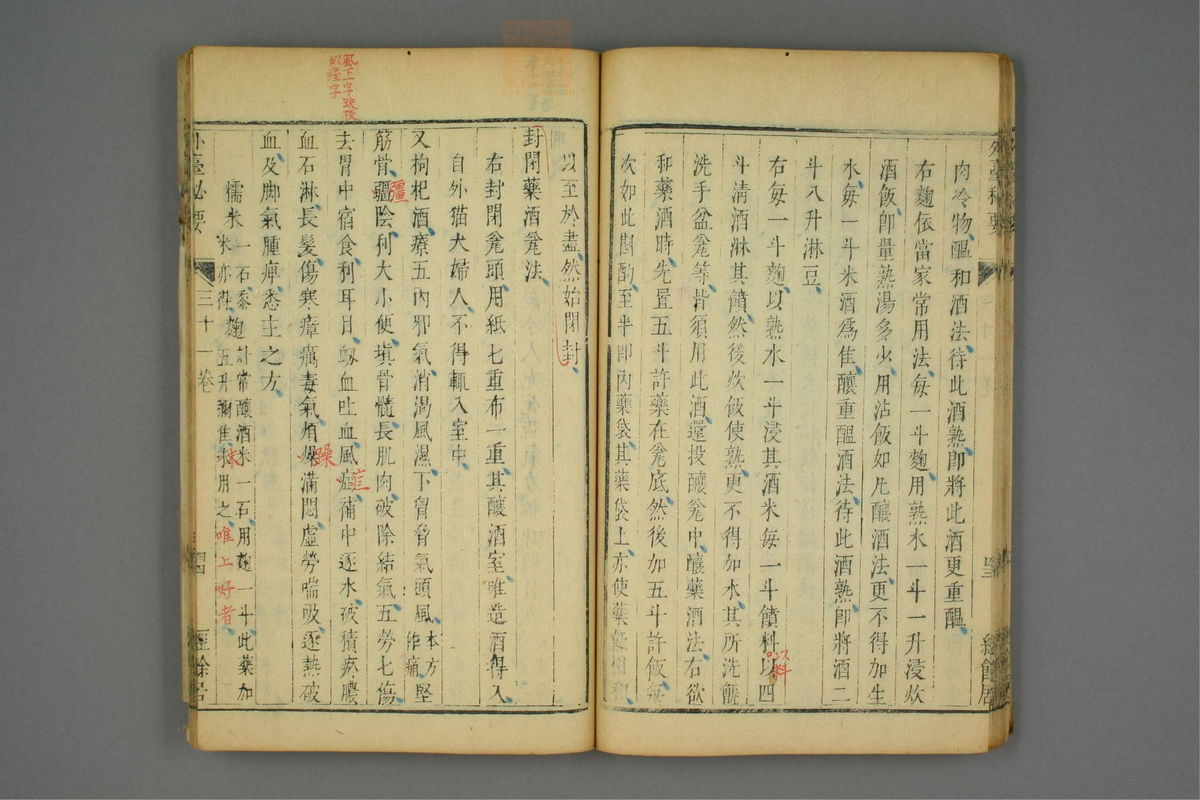 肉冷物醞和酒法待此酒熟即將此酒更重醞
右麴依當家常用法每一斗麴用熟水一斗一升浸炊
酒飯即量熟湯多少用沾飯如凡釀酒法更不得加生
水每一斗米酒爲隹釀重醞酒法待此酒熟即將酒二
斗八升淋豆
右每一斗麴以熟水一斗浸其酒米每一斗饙料以四
斗淸酒淋其饙然後炊飯使熟更不得加水其所洗
洗手盆瓮等皆須用此酒還投釀瓮中釀藥酒法右欲
和藥酒時先置五斗許藥在瓮底然後加五斗許飯每
次如此斟酌至半即內藥袋其藥袋上亦使藥飯相和
外臺秘要
經餘居
以至於盡然始閉封
封閉藥酒瓮法
右封閉瓮頭用紙七重布一重其釀酒室唯造酒得入
自外猫犬婦人不得輒入室中
又枸杞酒療五內邪氣消渴風濕下胷脅氣頭風本方作痛堅
筋骨疆陰利大小便填骨髓長肌肉破除結氣五勞七傷
去胃中宿食利耳目衂血吐血風補中逐水破積疼膿
血石淋長髮傷寒瘴癘毒氣煩燥滿悶虛勞喘吸逐熱破
血及脚氣腫痺悉主之方
糯米一石黍米亦得 麴計常釀酒米一石用麴一斗此藥加五升彌隹末用之
唯上好者
外臺必要
三十一卷
四四
經餘居